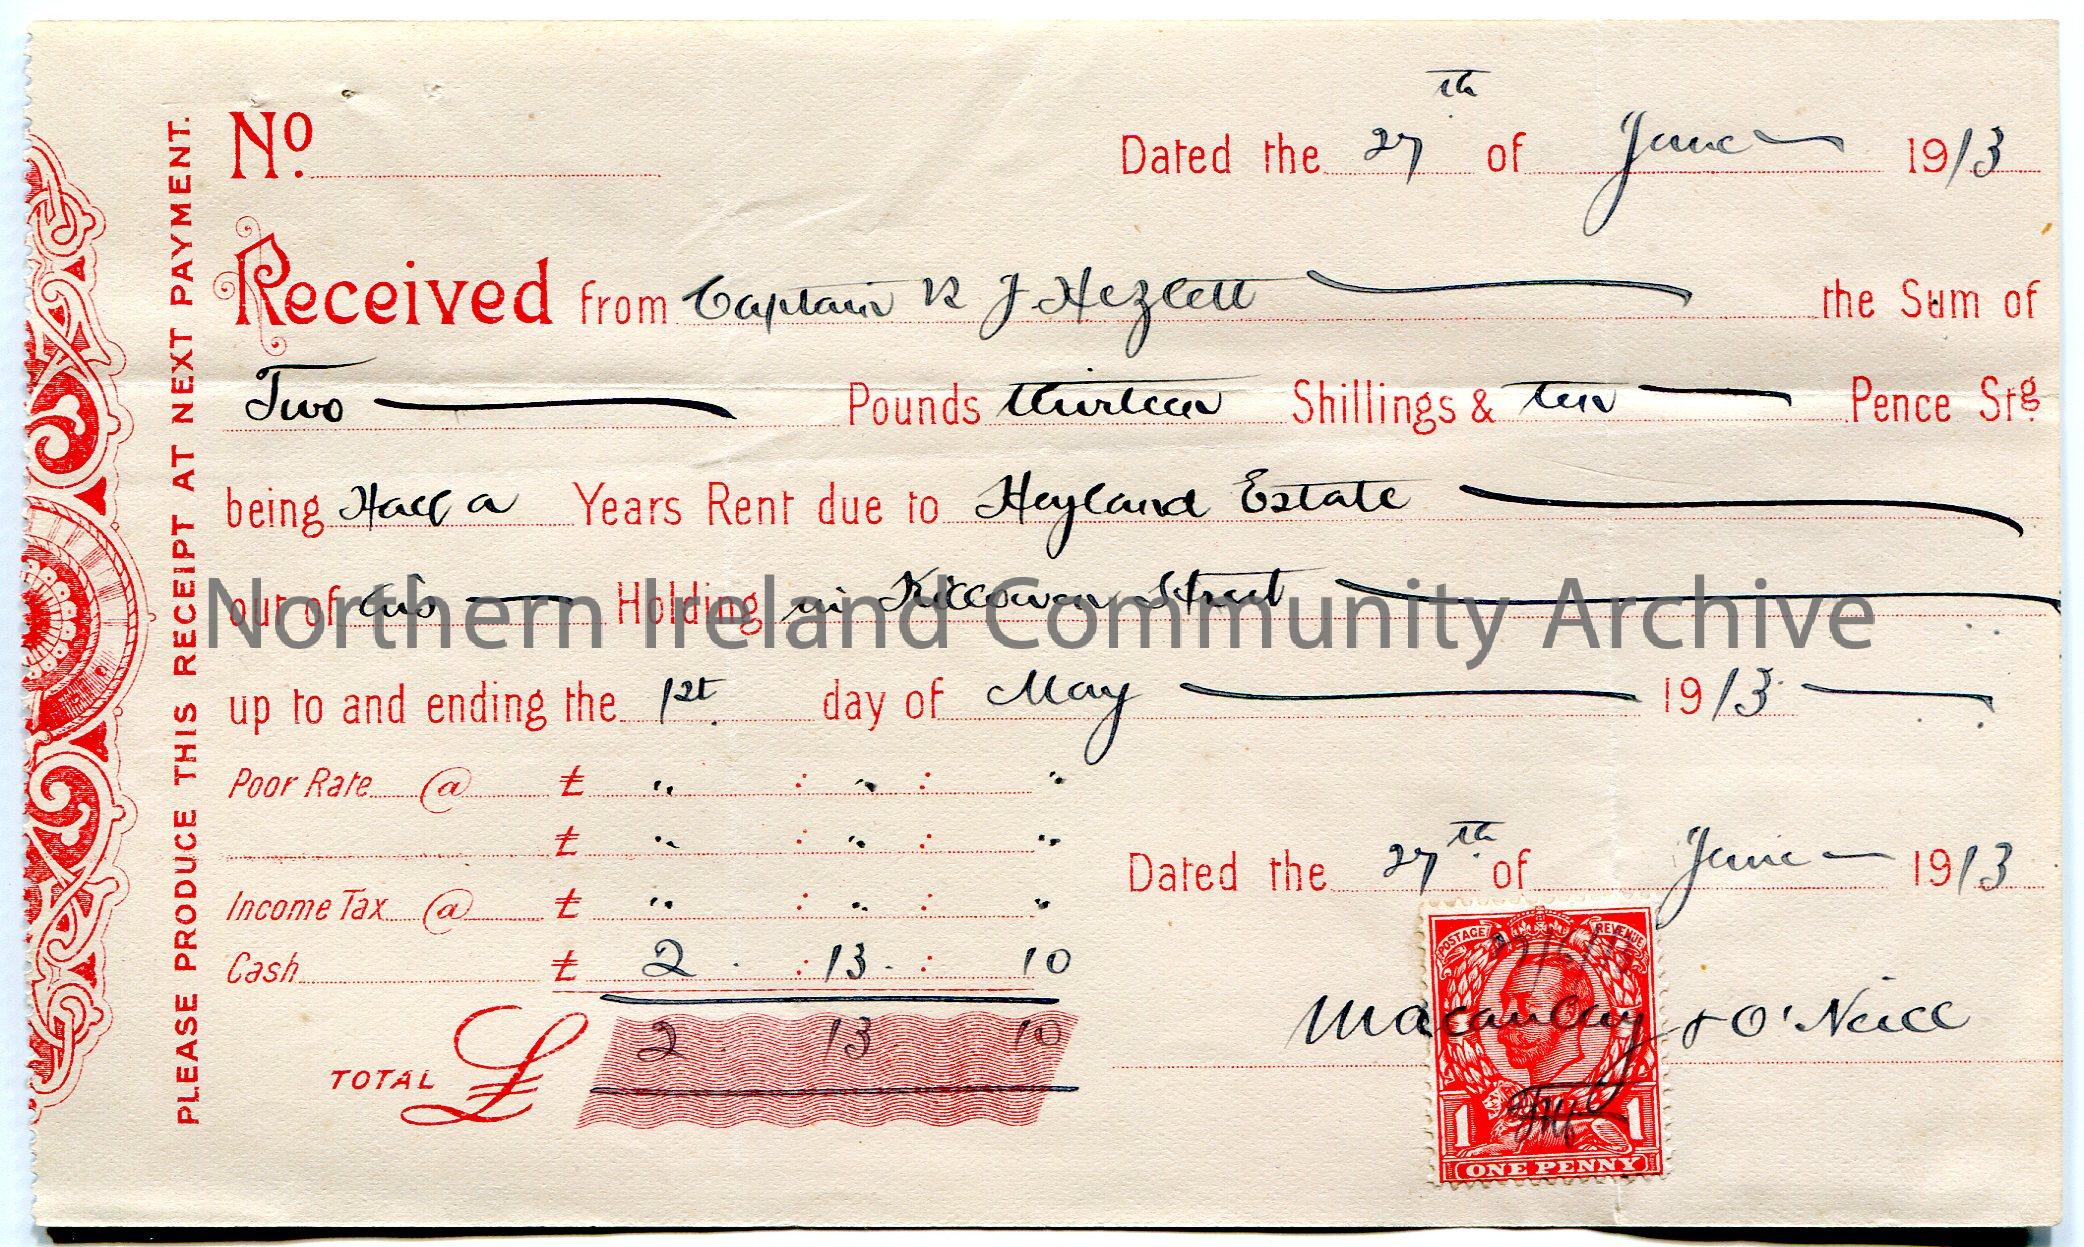 PLEASE PRODUCE THIS RECEIPT AT NEXT PAYMENT.
No. Dated the 27th of June 1913
Received from Captain R J Hezlett the Sum of
Two Pounds thirteen Shillings & ten Pence Stg.
being Half a Years Rent due to Heyland Estate
out of his Holding in Killowen Street
Northern Ireland Community Archive
up to and ending the 1st day of May 1913
Poor Rate @ £ " : " : "
£ " : " : "
Dated the 27th of June 1913
Income Tax @ £ " : " : "
Cash £ 2 : 13 : 10
TOTAL £ 2 13 10
Macaulay & O'Neill
POSTAGE REVENUE
27/6/13
1 1
ONE PENNY